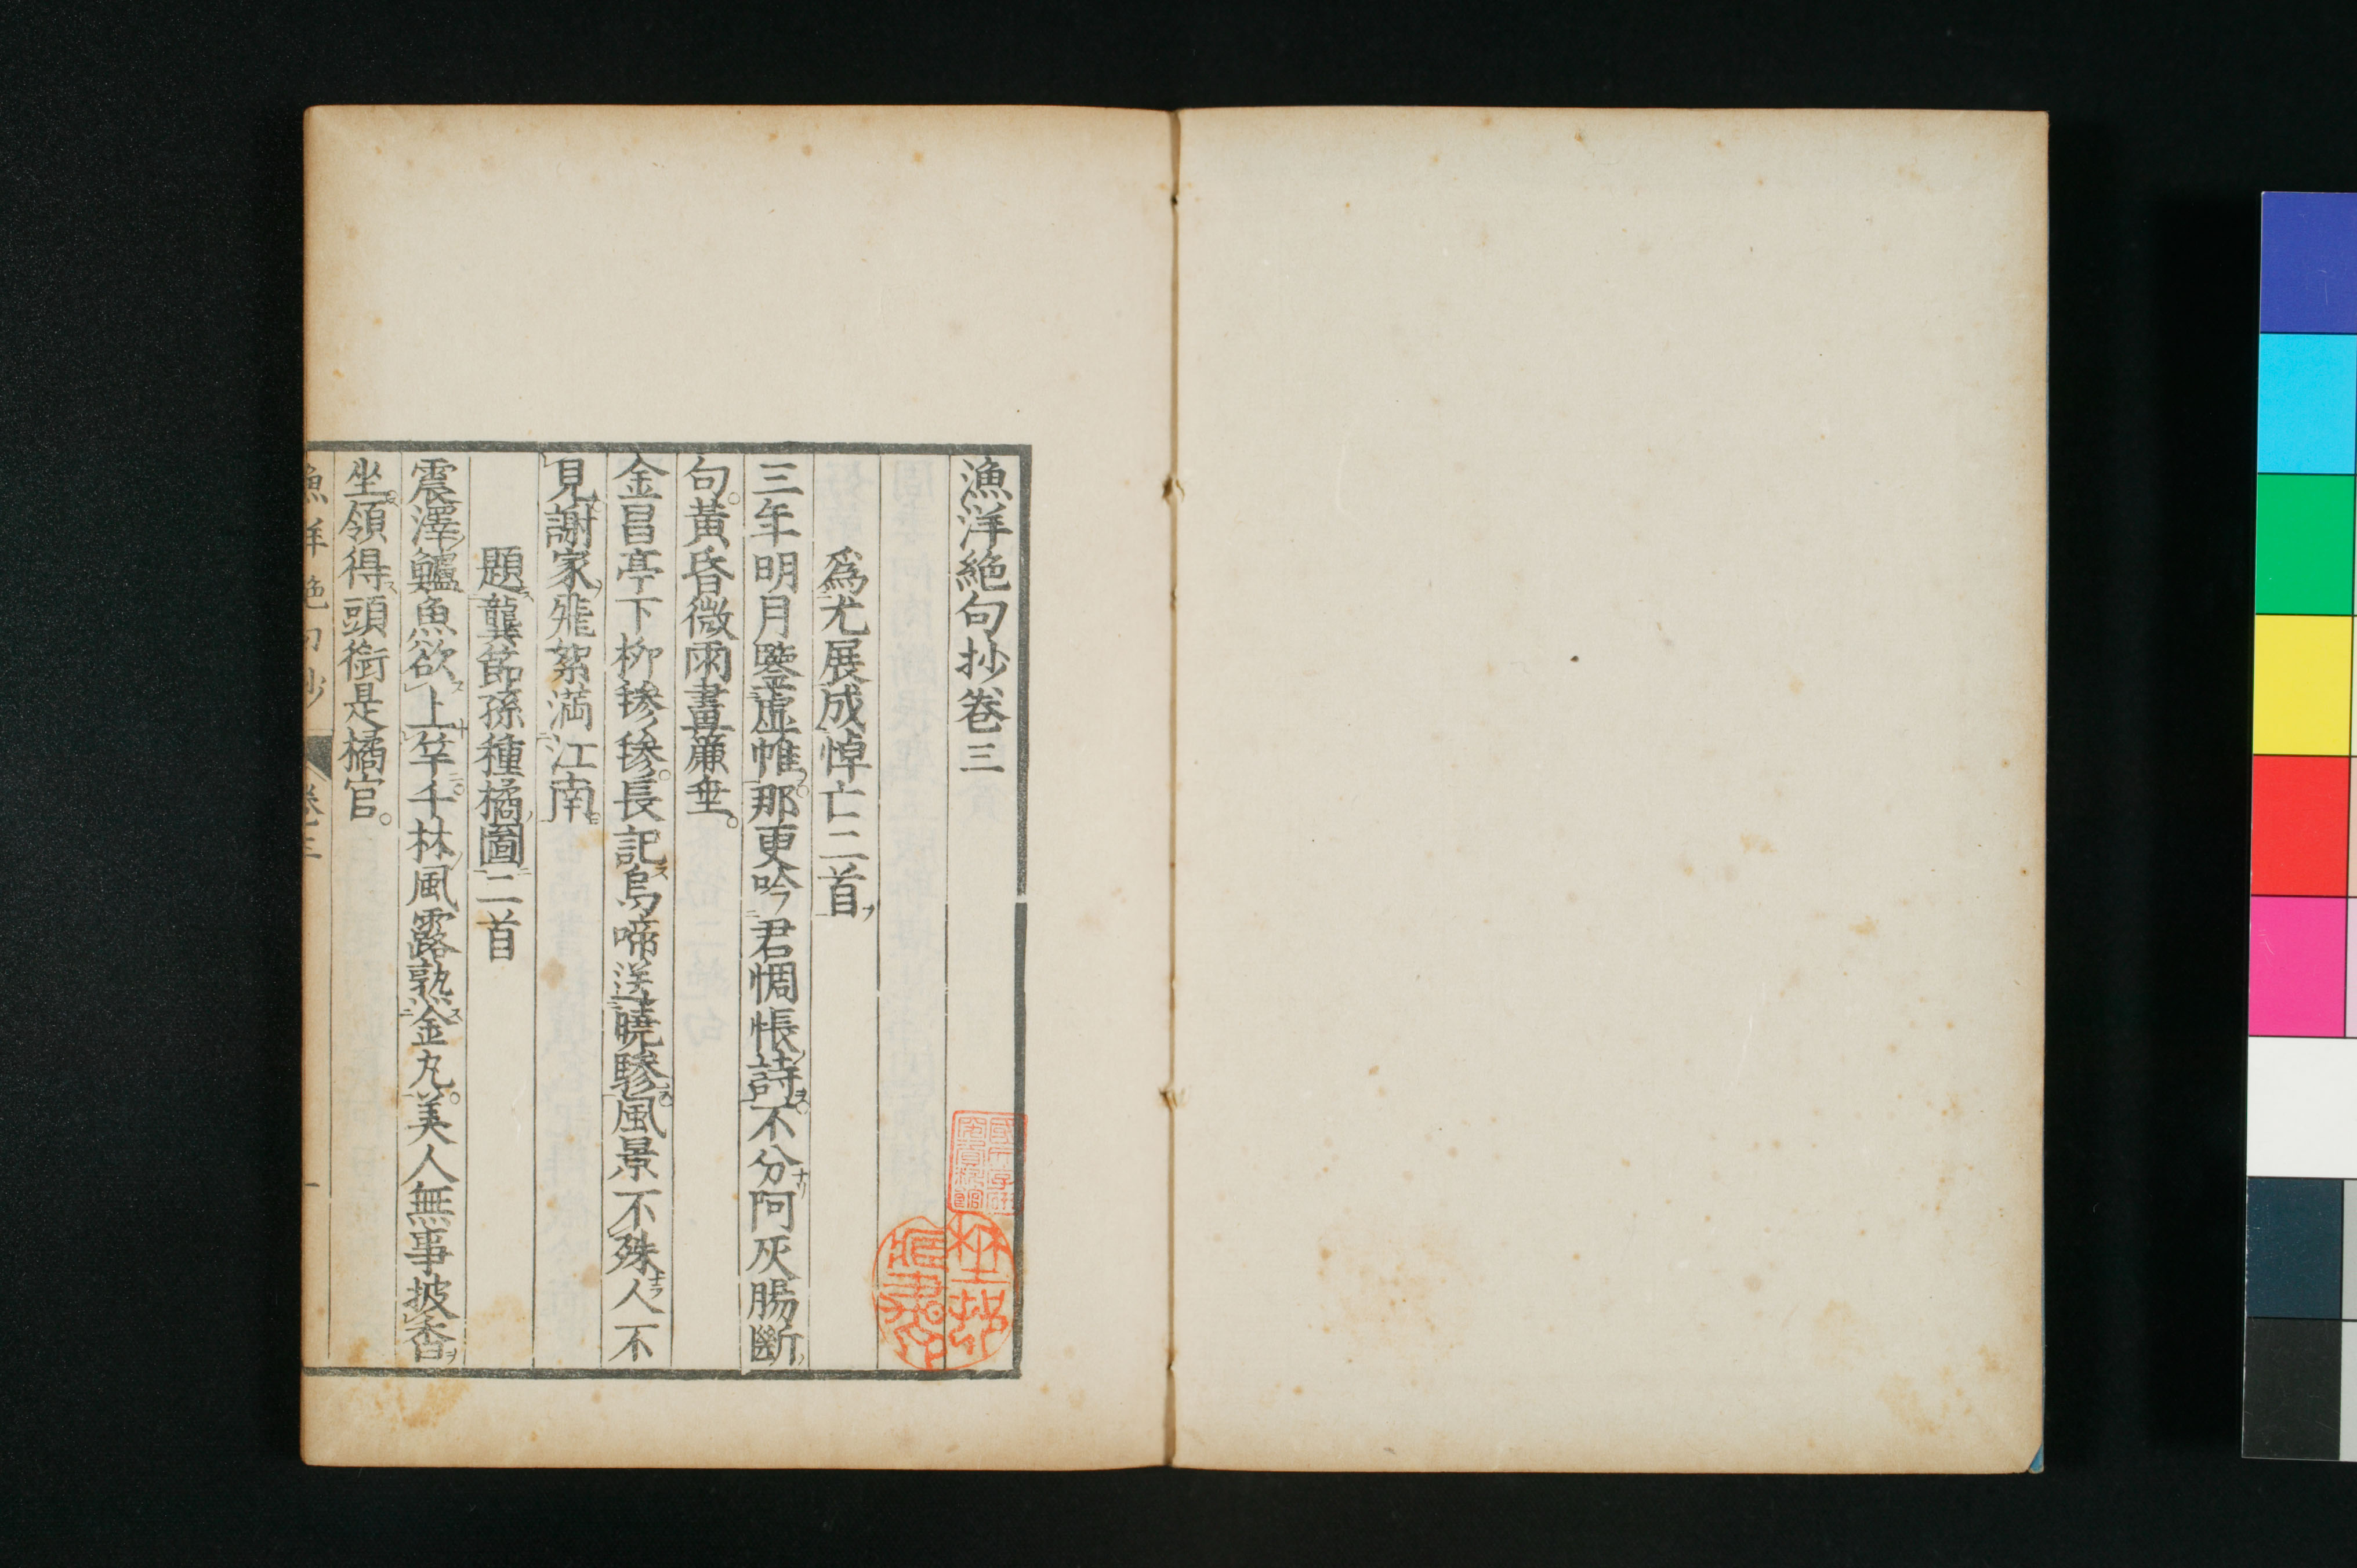 漁洋絶句抄卷三
爲尤展成悼亡二首
三年明月鑒虛帷那更吟君惆悵詩不分阿灰腸斷
句黃昏微雨畫簾垂
金昌亭下柳毿毿長記烏啼送曉驂風景不殊人不
見謝家飛絮滿江南
題龔節孫種橘圖二首
震澤鱸魚欲上竿千林風露熟金丸美人無事披香
坐領得頭銜是橘官
漁洋絶句抄 卷三 一